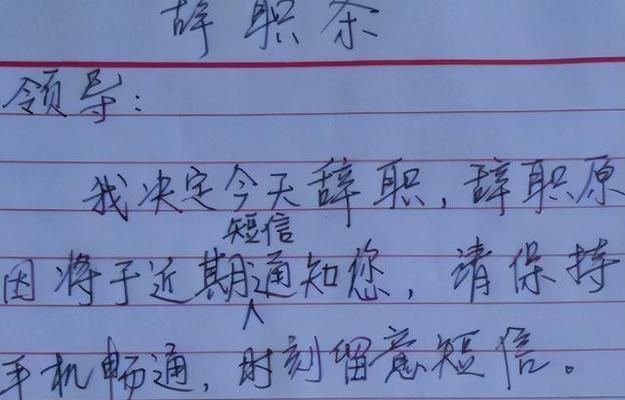 辞职条
领导：
我决定今天辞职，辞职原
短信
因将于近期通知您，请保持
手机畅通，时刻留意短信。